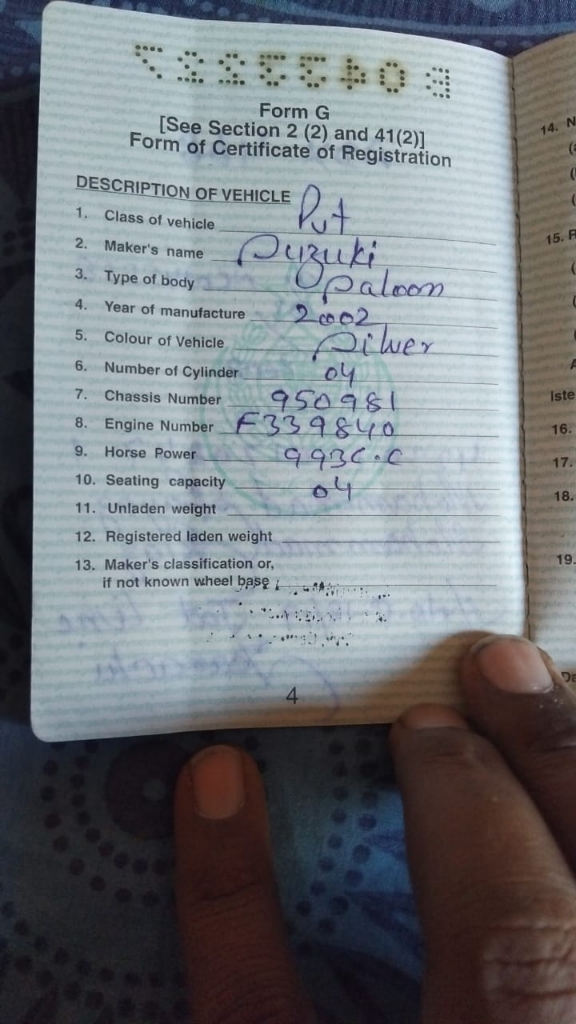 Form G
[See Section 2 (2) and 41(2)]
Form of Certificate of Registration
DESCRIPTION OF VEHICLE
1. Class of vehicle Pvt
2. Maker's name Suzuki
3. Type of body Saloon
4. Year of manufacture 2002
5. Colour of Vehicle Silver
6. Number of Cylinder 04
7. Chassis Number 950981
8. Engine Number F339840
9. Horse Power 993C.C
10. Seating capacity 04
11. Unladen weight
12. Registered laden weight
13. Maker's classification or,
if not known wheel base
4
14. N
15.
Iste
16.
17.
18.
19.
Da